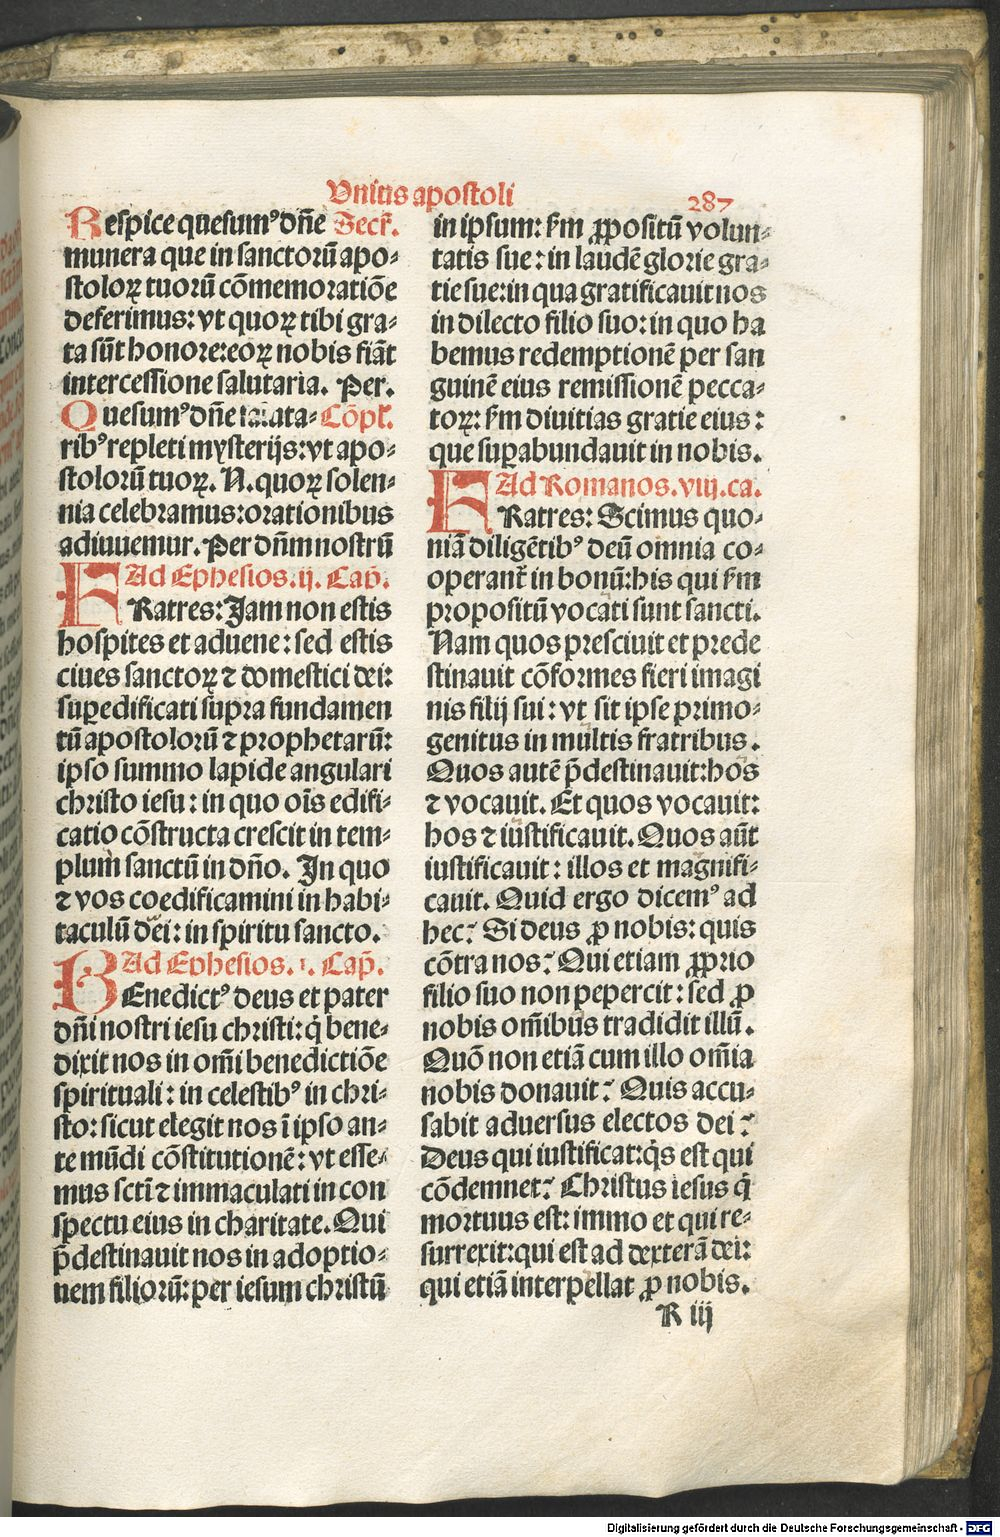 Vnius apostoli
287
Respice quesumꝰ dn̄e Secr̄.
munera que in sanctorū apo⸗
stoloꝝ tuorū cōmemoratiōe
deferimus: vt quoꝝ tibi gra⸗
ta sūt honore: eoꝝ nobis fiāt
intercessione salutaria. Per.
Quesumꝰ dn̄e saluta⸗ Cōpl̄.
ribꝰ repleti mysterijs: vt apo⸗
stolorū tuoꝝ. N. quoꝝ solen⸗
nia celebramus: orationibus
adiuuemur. Per dn̄m nostrū
Ad Ephesios. ij. Cap̄.
FRatres: Jam non estis
hospites et aduene: sed estis
ciues sanctoꝝ ⁊ domestici dei:
suꝑedificati supra fundamen
tū apostolorū ⁊ prophetarū:
ipso summo lapide angulari
christo iesu: in quo oīs edifi⸗
catio cōstructa crescit in tem⸗
plum sanctū in dn̄o. In quo
⁊ vos coedificamini in habi⸗
taculū dei: in spiritu sancto.
Ad Ephesios. i. Cap̄.
BEnedictꝰ deus et pater
dn̄i nostri iesu christi: q̇ bene⸗
dixit nos in om̄i benedictiōe
spirituali: in celestibꝰ in chri⸗
sto: sicut elegit nos ī ipso an⸗
te mūdi cōstitutionē: vt esse⸗
mus sctī ⁊ immaculati in con
spectu eius in charitate. Qui
p̄destinauit nos in adoptio⸗
nem filiorū: per iesum christū
in ipsum: s̄m ꝓpositū volun⸗
tatis sue: in laudē glorie gra⸗
tie sue: in qua gratificauit nos
in dilecto filio suo: in quo ha
bemus redemptionē per san
guinē eius remissionē pecca⸗
toꝝ: s̄m diuitias gratie eius:
que suꝑabundauit in nobis.
Ad Romanos. viij. ca.
FRatres: Scimus quo⸗
niā diligētibꝰ deū omnia co⸗
operant̄ in bonū: his qui s̄m
propositū vocati sunt sancti.
Nam quos presciuit et prede
stinauit cōformes fieri imagi
nis filij sui: vt sit ipse primo⸗
genitus in multis fratribus.
Quos autē p̄destinauit: hos
⁊ vocauit. Et quos vocauit:
hos ⁊ iustificauit. Quos aūt
iustificauit: illos et magnifi⸗
cauit. Quid ergo dicemꝰ ad
hec? Si deus ꝓ nobis: quis
cōtra nos? Qui etiam ꝓprio
filio suo non pepercit: sed ꝓ
nobis om̄ibus tradidit illū.
Quō non etiā cum illo om̄ia
nobis donauit? Quis accu⸗
sabit aduersus electos dei?
Deus qui iustificat: q̇s est qui
cōdemnet? Christus iesus q̇
mortuus est: immo et qui re⸗
surrexit: qui est ad dexterā dei:
qui etiā interpellat ꝓ nobis.
R iij
Digitalisierung gefördert durch die Deutsche Forschungsgemeinschaft - DFG